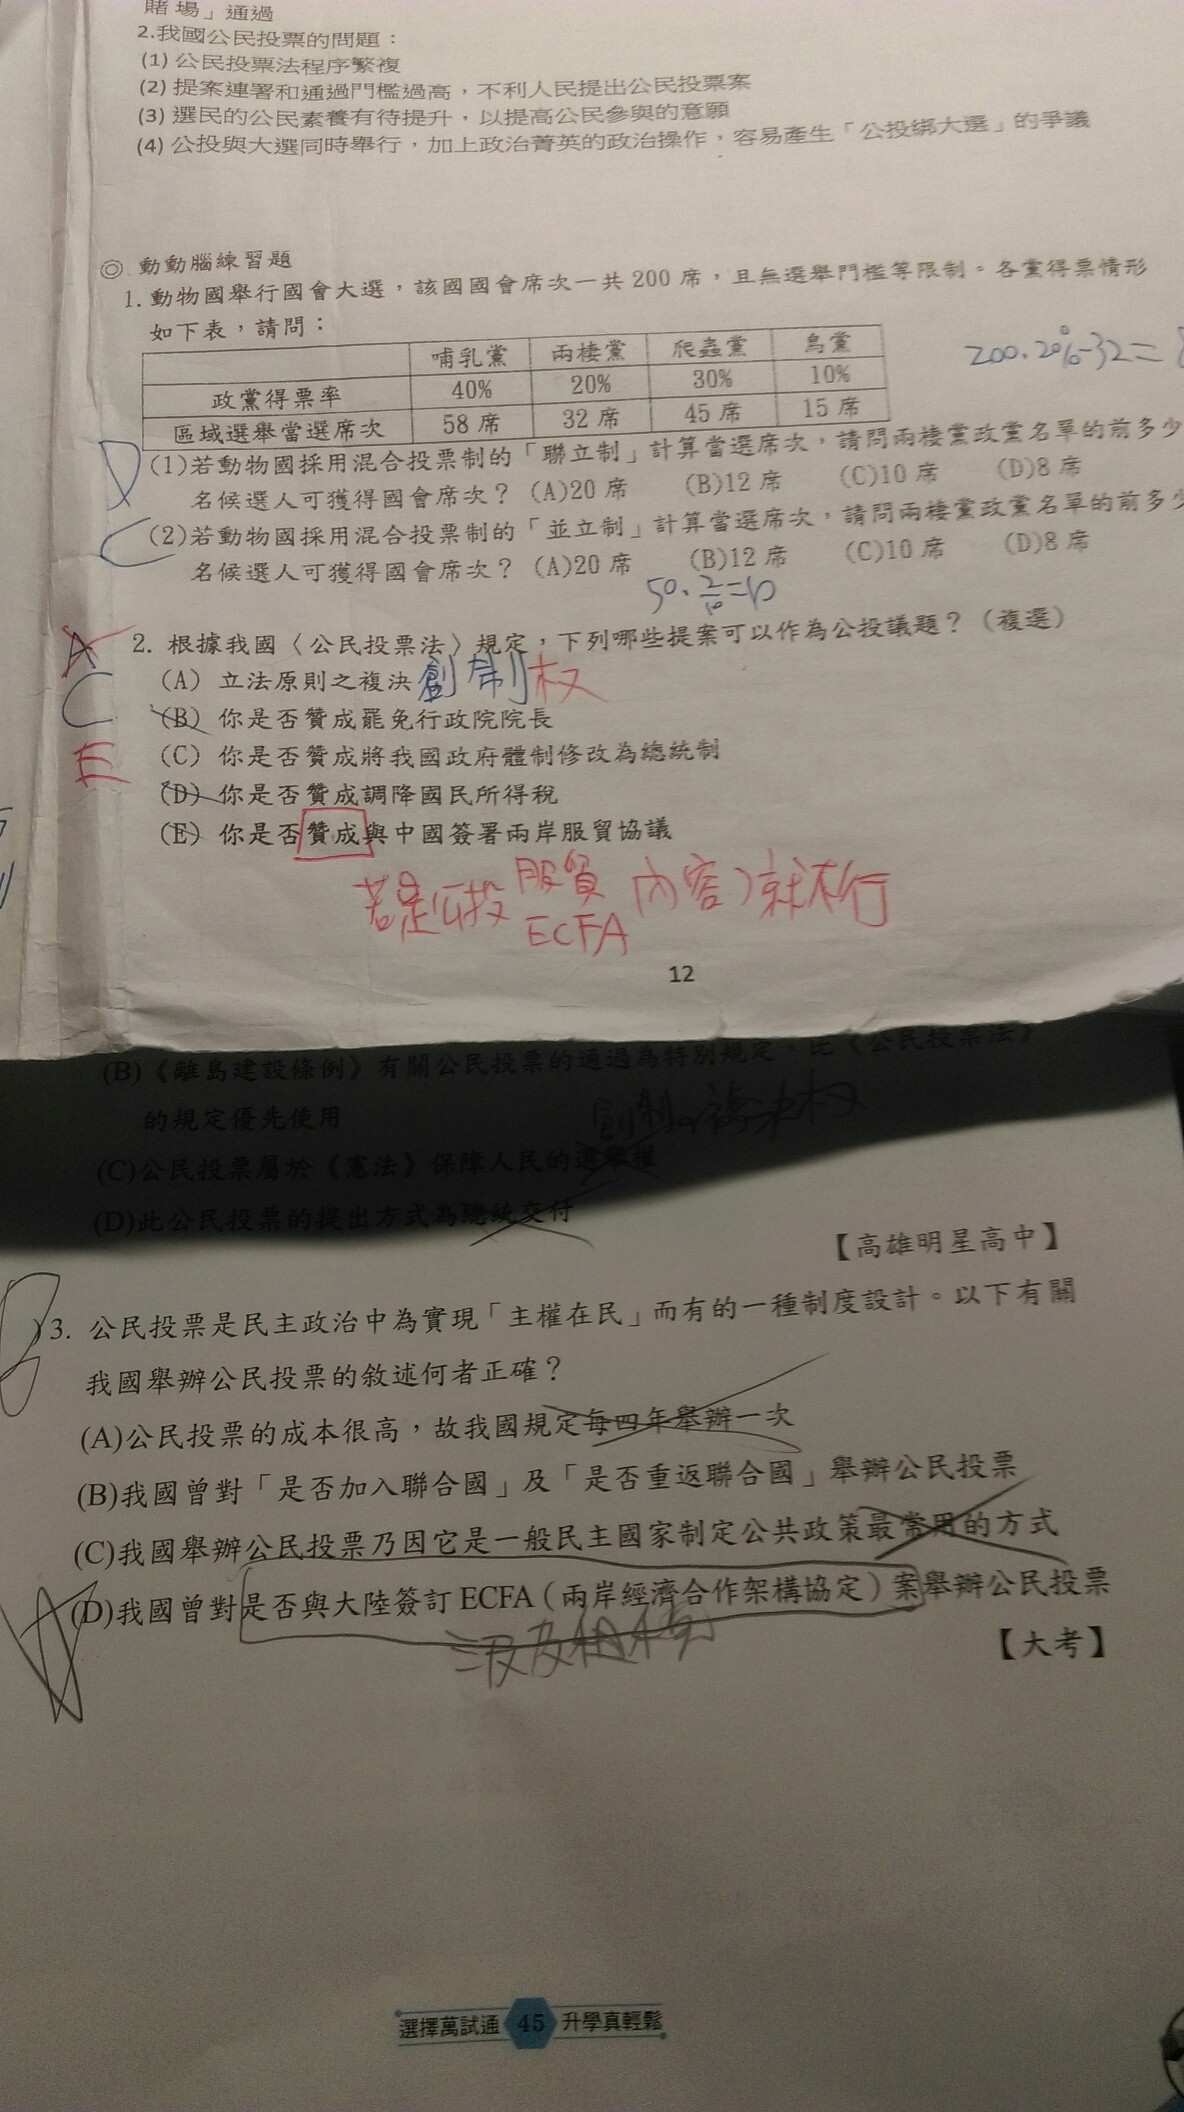 賭場」通過
2.我國公民投票的問題：
(1) 公民投票法程序繁複
(2) 提案連署和通過門檻過高，不利人民提出公民投票案
(3) 選民的公民素養有待提升，以提高公民參與的意願
(4) 公投與大選同時舉行，加上政治菁英的政治操作，容易產生「公投綁大選」的爭議
◎ 動動腦練習題
1. 動物國舉行國會大選，該國國會席次一共 200 席，且無選舉門檻等限制。各黨得票情形
如下表，請問：
哺乳黨 兩棲黨 爬蟲黨 鳥黨
政黨得票率 40% 20% 30% 10%
區域選舉當選席次 58 席 32 席 45 席 15 席
200.20%-32=
D
(1)若動物國採用混合投票制的「聯立制」計算當選席次，請問兩棲黨政黨名單的前多少
名候選人可獲得國會席次？ (A)20 席 (B)12 席 (C)10 席 (D)8 席
C
(2)若動物國採用混合投票制的「並立制」計算當選席次，請問兩棲黨政黨名單的前多少
名候選人可獲得國會席次？ (A)20 席 (B)12 席 (C)10 席 (D)8 席
50.2/10=10
A
C
E
2. 根據我國〈公民投票法〉規定，下列哪些提案可以作為公投議題？（複選）
(A) 立法原則之複決 創制权
(B) 你是否贊成罷免行政院院長
(C) 你是否贊成將我國政府體制修改為總統制
(D) 你是否贊成調降國民所得稅
(E) 你是否贊成與中國簽署兩岸服貿協議
若是公投 服貿 內容 就不行
ECFA
12
(B)《離島建設條例》有關公民投票的通過為特別規定，比《公民投票法》
的規定優先使用
創制。複決权
(C)公民投票屬於《憲法》保障人民的選舉權
(D)此公民投票的提出方式為總統交付
【高雄明星高中】
B
)3. 公民投票是民主政治中為實現「主權在民」而有的一種制度設計。以下有關
我國舉辦公民投票的敘述何者正確？
(A)公民投票的成本很高，故我國規定每四年舉辦一次
(B)我國曾對「是否加入聯合國」及「是否重返聯合國」舉辦公民投票
(C)我國舉辦公民投票乃因它是一般民主國家制定公共政策最常用的方式
(D)我國曾對是否與大陸簽訂 ECFA（兩岸經濟合作架構協定）案舉辦公民投票
【大考】
選擇萬試通 45 升學真輕鬆